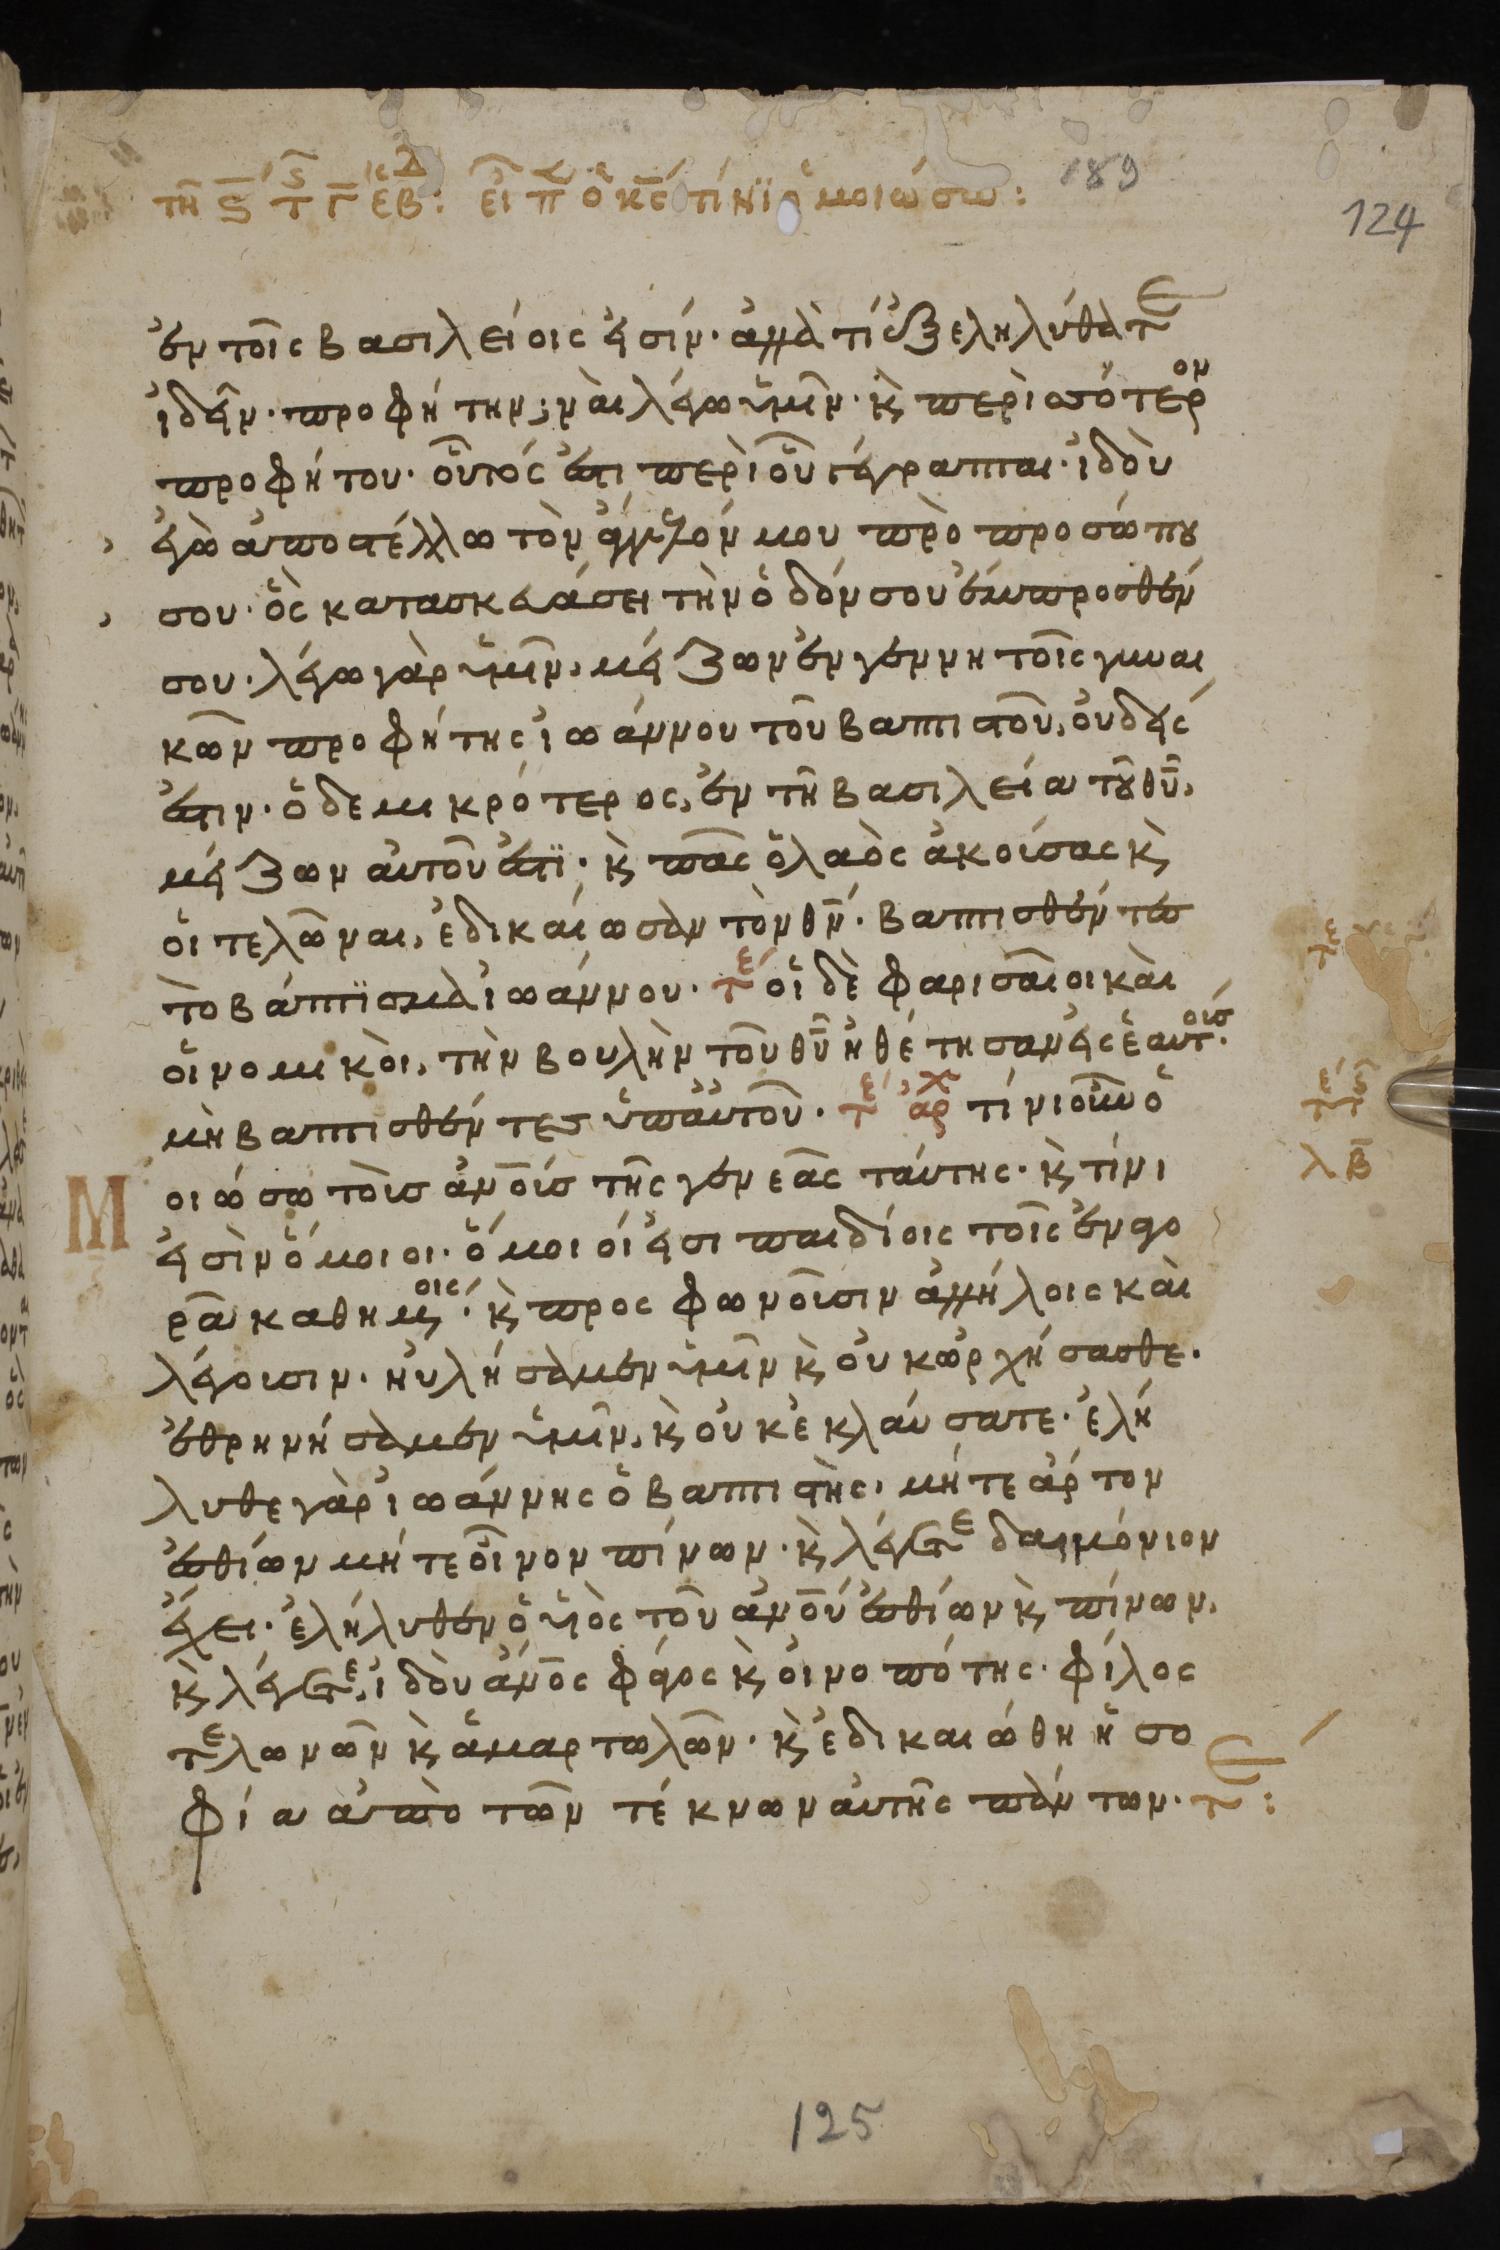 τῆ ς̄ τ Γ̄ ἑβ: εἶπ ὁ κς̄ τίνϊ ὁμοιώσω: 189
124
ἐν τοῖς βασιλείοις εἰσίν· ἀλλὰ τί ἐξεληλύθατε
ἰδεῖν· προφήτην; ναὶ λέγω ὑμῖν· κ̀ περισσότερον
προφήτου· οὗτός ἐστι περὶ οὗ γέγραπται· ἰδοὺ
ἐγὼ ἀποστέλλω τὸν ἄγγελόν μου πρὸ προσώπου
σου· ὃς κατασκευάσει τὴν ὁδόν σου ἔμπροσθέν
σου· λέγω γὰρ ὑμῖν, μείζων ἐν γεννητοῖς γυναι
κῶν προφήτης ἰωάννου τοῦ βαπτιστοῦ, οὐδείς
ἐστιν· ὁ δε μικρότερος, ἐν τῆ βασιλεία τοῦ θῡ,
μείζων αὐτοῦ ἐστϊ· κ̀ πᾶς ὁ λαὸς ἀκούσας κ̀
οἱ τελῶναι, ἐδικαίωσαν τὸν θν̄· βαπτισθέντες
τὸ βάπτϊσμα ἰωάννου· τε οἱ δὲ φαρισαῖοι καὶ
οἱ νομικὸι, τὴν βουλὴν τοῦ θῡ ἠθέτησαν εἰς ἑαυτοὺς·
μὴ βαπτισθέντες ὑπ' αὐτοῦ· τε ἀρχ τίνι οὖν ὁ
τε τς
λβ̄
Μ
οιώσω τοὺς ἀνο̄υς τῆς γενεᾶς ταύτης· κ̀ τίνι
εἰσὶν ὅμοιοι· ὅμοιοί εἰσι παιδίοις τοῖς ἐν ἀγο
ρᾶ καθημένοις· κ̀ προσφωνοῦσιν ἀλλήλοις καὶ
λέγουσιν· ηὐλήσαμεν ὑμῖν κ̀ οὐκ ὠρχήσασθε·
ἐθρηνήσαμεν ὑμῖν, κ̀ οὐκ ἐκλαύσατε· ἐλή
λυθε γὰρ ἰωάννης ὁ βαπτιστὴς, μήτε ἄρτον
ἐσθίων μήτε οἶνον πίνων· κ̀ λέγετε δαιμόνιον
ἔχει· ἐλήλυθεν ὁ υἱὸς τοῦ ἀνο̄υ ἐσθίων κ̀ πίνων,
κ̀ λέγετε, ἰδοὺ ἀνο̄ς φάγος κ̀ οἰνοπότης· φίλος
τελωνῶν κ̀ ἁμαρτωλῶν· κ̀ ἐδικαιώθη ἡ σο
φία ἀπὸ τῶν τέκνων αὐτῆς πάντων· τε:
125